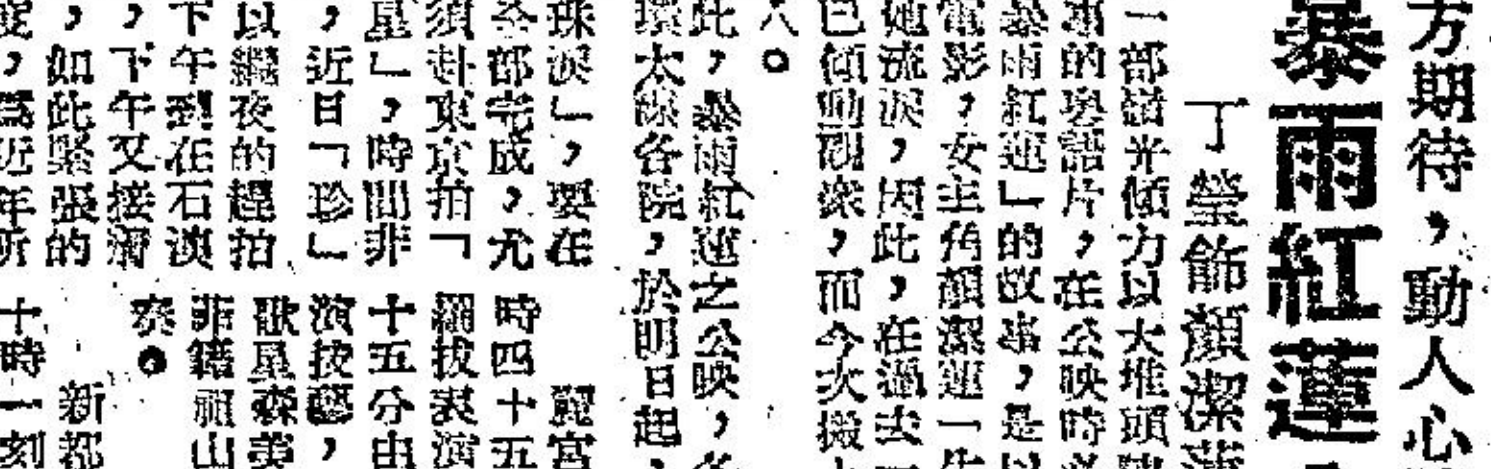 方期待，動人心
暴雨紅蓮
丁瑩飾顏潔蓮
一部嶺光傾力以大堆頭
的粵語片，在公映時必
暴雨紅蓮」的故事，是以
電影，女主角顏潔蓮一生
她流淚，因此，在過去
已傾動觀衆，而今次搬
人。
此，暴雨紅蓮之公映，各
環太線各院，於明日起，
珠淚」，要在
全部完成，尤
須赴東京拍「
星」，時間非
，近日「珍」
以繼夜的趕拍
下午到在石澳
，下午又接
，如此緊張的
度，爲近年所
麗宮
時四十五
綱拔表演
十五分由
演技藝，
歌星森美
菲籍祖山
奏。
新都
十時一刻